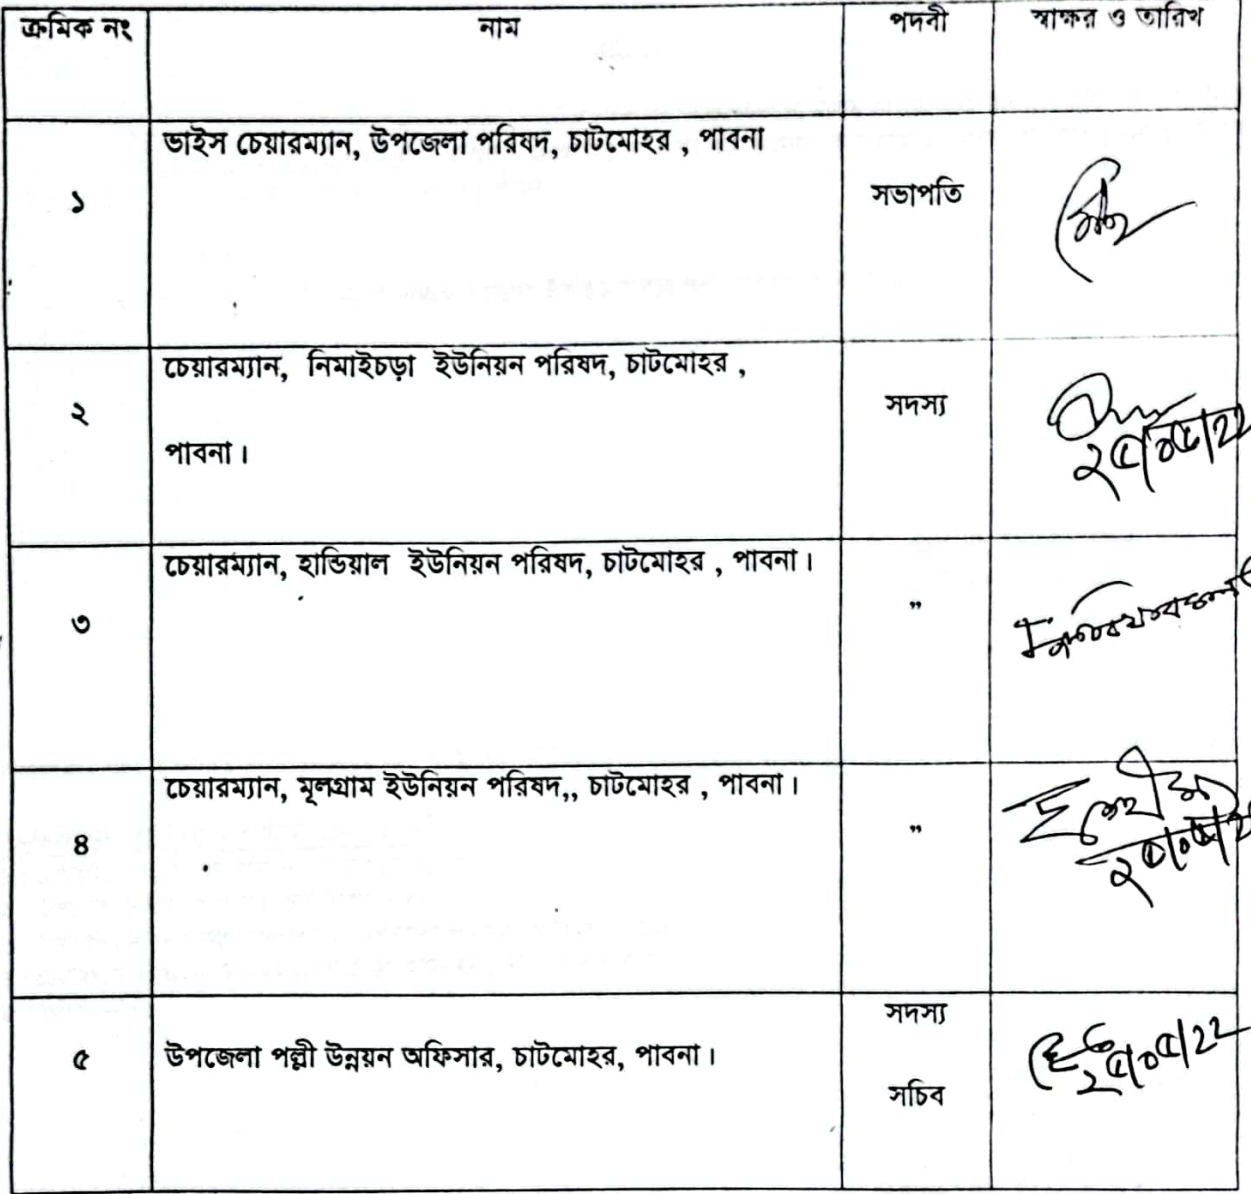 ক্রমিক নং নাম পদবী স্বাক্ষর ও তারিখ
ভাইস চেয়ারম্যান, উপজেলা পরিষদ, চাটমোহর , পাবনা
১ সভাপতি
চেয়ারম্যান, নিমাইচড়া ইউনিয়ন পরিষদ, চাটমোহর ,
২ সদস্য
পাবনা।
২৫/০৫/২২
চেয়ারম্যান, হান্ডিয়াল ইউনিয়ন পরিষদ, চাটমোহর , পাবনা।
৩ ”
চেয়ারম্যান, মূলগ্রাম ইউনিয়ন পরিষদ,, চাটমোহর , পাবনা।
৪ ”
সদস্য
৫ উপজেলা পল্লী উন্নয়ন অফিসার, চাটমোহর, পাবনা।
২৫/০৫/২২
সচিব